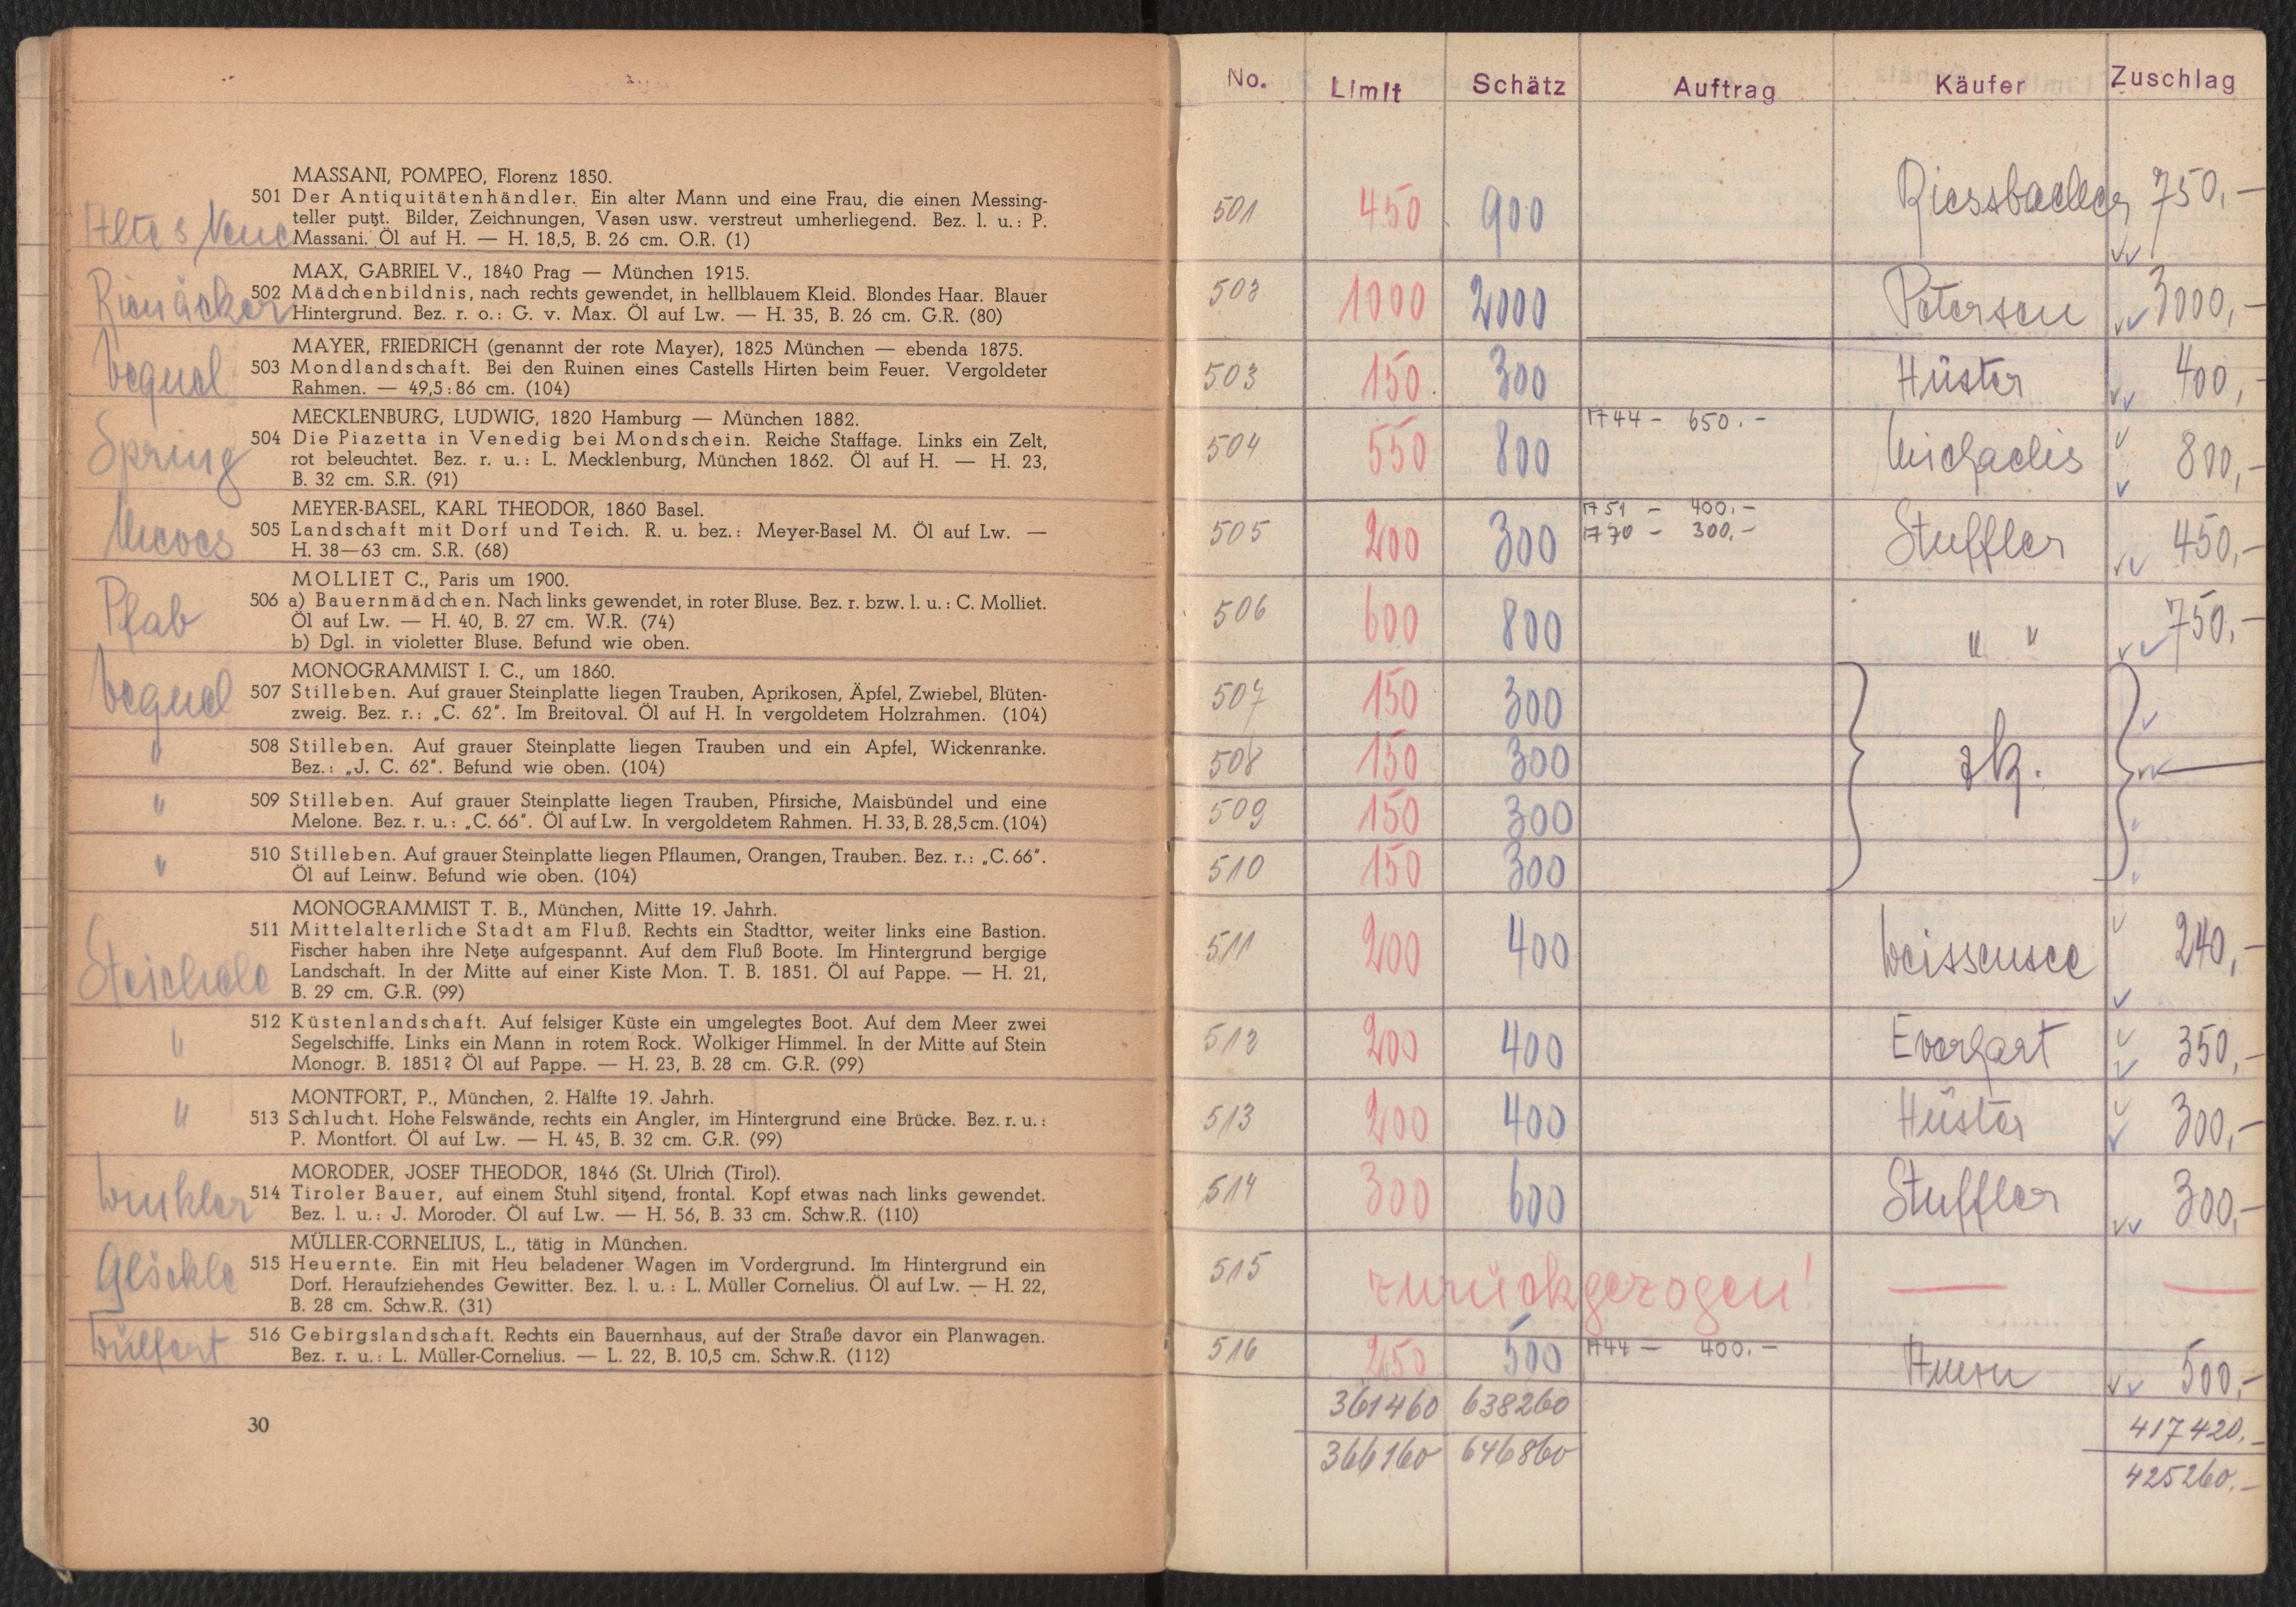 MASSANI, POMPEO, Florenz 1850.
501 Der Antiquitätenhändler. Ein alter Mann und eine Frau, die einen Messing-
teller putzt. Bilder, Zeichnungen, Vasen usw. verstreut umherliegend. Bez. l. u.: P.
Altes Neue Massani. Öl auf H. — H. 18,5, B. 26 cm. O.R. (1)
MAX, GABRIEL V., 1840 Prag — München 1915.
Rienäcker 502 Mädchenbildnis, nach rechts gewendet, in hellblauem Kleid. Blondes Haar. Blauer
Hintergrund. Bez. r. o.: G. v. Max. Öl auf Lw. — H. 35, B. 26 cm. G.R. (80)
MAYER, FRIEDRICH (genannt der rote Mayer), 1825 München — ebenda 1875.
503 Mondlandschaft. Bei den Ruinen eines Castells Hirten beim Feuer. Vergoldeter
Rahmen. — 49,5:86 cm. (104)
MECKLENBURG, LUDWIG, 1820 Hamburg — München 1882.
Spring 504 Die Piazetta in Venedig bei Mondschein. Reiche Staffage. Links ein Zelt,
rot beleuchtet. Bez. r. u.: L. Mecklenburg, München 1862. Öl auf H. — H. 23,
B. 32 cm. S.R. (91)
MEYER-BASEL, KARL THEODOR, 1860 Basel.
505 Landschaft mit Dorf und Teich. R. u. bez.: Meyer-Basel M. Öl auf Lw. —
H. 38—63 cm. S.R. (68)
MOLLIET C., Paris um 1900.
Pfab 506 a) Bauernmädchen. Nach links gewendet, in roter Bluse. Bez. r. bzw. l. u.: C. Molliet.
Öl auf Lw. — H. 40, B. 27 cm. W.R. (74)
b) Dgl. in violetter Bluse. Befund wie oben.
MONOGRAMMIST I. C., um 1860.
507 Stilleben. Auf grauer Steinplatte liegen Trauben, Aprikosen, Äpfel, Zwiebel, Blüten-
zweig. Bez. r.: „C. 62". Im Breitoval. Öl auf H. In vergoldetem Holzrahmen. (104)
" 508 Stilleben. Auf grauer Steinplatte liegen Trauben und ein Apfel, Wickenranke.
Bez.: „J. C. 62". Befund wie oben. (104)
" 509 Stilleben. Auf grauer Steinplatte liegen Trauben, Pfirsiche, Maisbündel und eine
Melone. Bez. r. u.: „C. 66". Öl auf Lw. In vergoldetem Rahmen. H. 33, B. 28,5 cm. (104)
" 510 Stilleben. Auf grauer Steinplatte liegen Pflaumen, Orangen, Trauben. Bez. r.: „C. 66".
Öl auf Leinw. Befund wie oben. (104)
MONOGRAMMIST T. B., München, Mitte 19. Jahrh.
511 Mittelalterliche Stadt am Fluß. Rechts ein Stadttor, weiter links eine Bastion.
Fischer haben ihre Netze aufgespannt. Auf dem Fluß Boote. Im Hintergrund bergige
Steichele Landschaft. In der Mitte auf einer Kiste Mon. T. B. 1851. Öl auf Pappe. — H. 21,
B. 29 cm. G.R. (99)
512 Küstenlandschaft. Auf felsiger Küste ein umgelegtes Boot. Auf dem Meer zwei
" Segelschiffe. Links ein Mann in rotem Rock. Wolkiger Himmel. In der Mitte auf Stein
Monogr. B. 1851? Öl auf Pappe. — H. 23, B. 28 cm. G.R. (99)
MONTFORT, P., München, 2. Hälfte 19. Jahrh.
" 513 Schlucht. Hohe Felswände, rechts ein Angler, im Hintergrund eine Brücke. Bez. r. u.:
P. Montfort. Öl auf Lw. — H. 45, B. 32 cm. G.R. (99)
MORODER, JOSEF THEODOR, 1846 (St. Ulrich (Tirol).
Winkler 514 Tiroler Bauer, auf einem Stuhl sitzend, frontal. Kopf etwas nach links gewendet.
Bez. l. u.: J. Moroder. Öl auf Lw. — H. 56, B. 33 cm. Schw.R. (110)
MÜLLER-CORNELIUS, L., tätig in München.
Glöckle 515 Heuernte. Ein mit Heu beladener Wagen im Vordergrund. Im Hintergrund ein
Dorf. Heraufziehendes Gewitter. Bez. l. u.: L. Müller Cornelius. Öl auf Lw. — H. 22,
B. 28 cm. Schw.R. (31)
Wülfert 516 Gebirgslandschaft. Rechts ein Bauernhaus, auf der Straße davor ein Planwagen.
Bez. r. u.: L. Müller-Cornelius. — L. 22, B. 10,5 cm. Schw.R. (112)
30
No. Limit Schätz Auftrag Käufer Zuschlag
501 450 900 750,-
502 1000 2000 Petersen 3000,-
503 150 300 Hüster 400,-
504 550 800 1744 - 650.- Michaelis 800,-
505 200 300 1751 - 400.- Stuffler 450,-
1770 - 300.-
506 600 800 " " 750,-
507 150 300
508 150 300 zk.
509 150 300
510 150 300
511 200 400 Weissensee 240,-
512 200 400 Everhart 350,-
513 200 400 Hüster 300,-
514 300 600 Stuffler 300,-
515 zurückgezogen! — —
516 250 500 1744 - 400.- 500,-
361460 638260 417420.-
366160 646860 425260.-